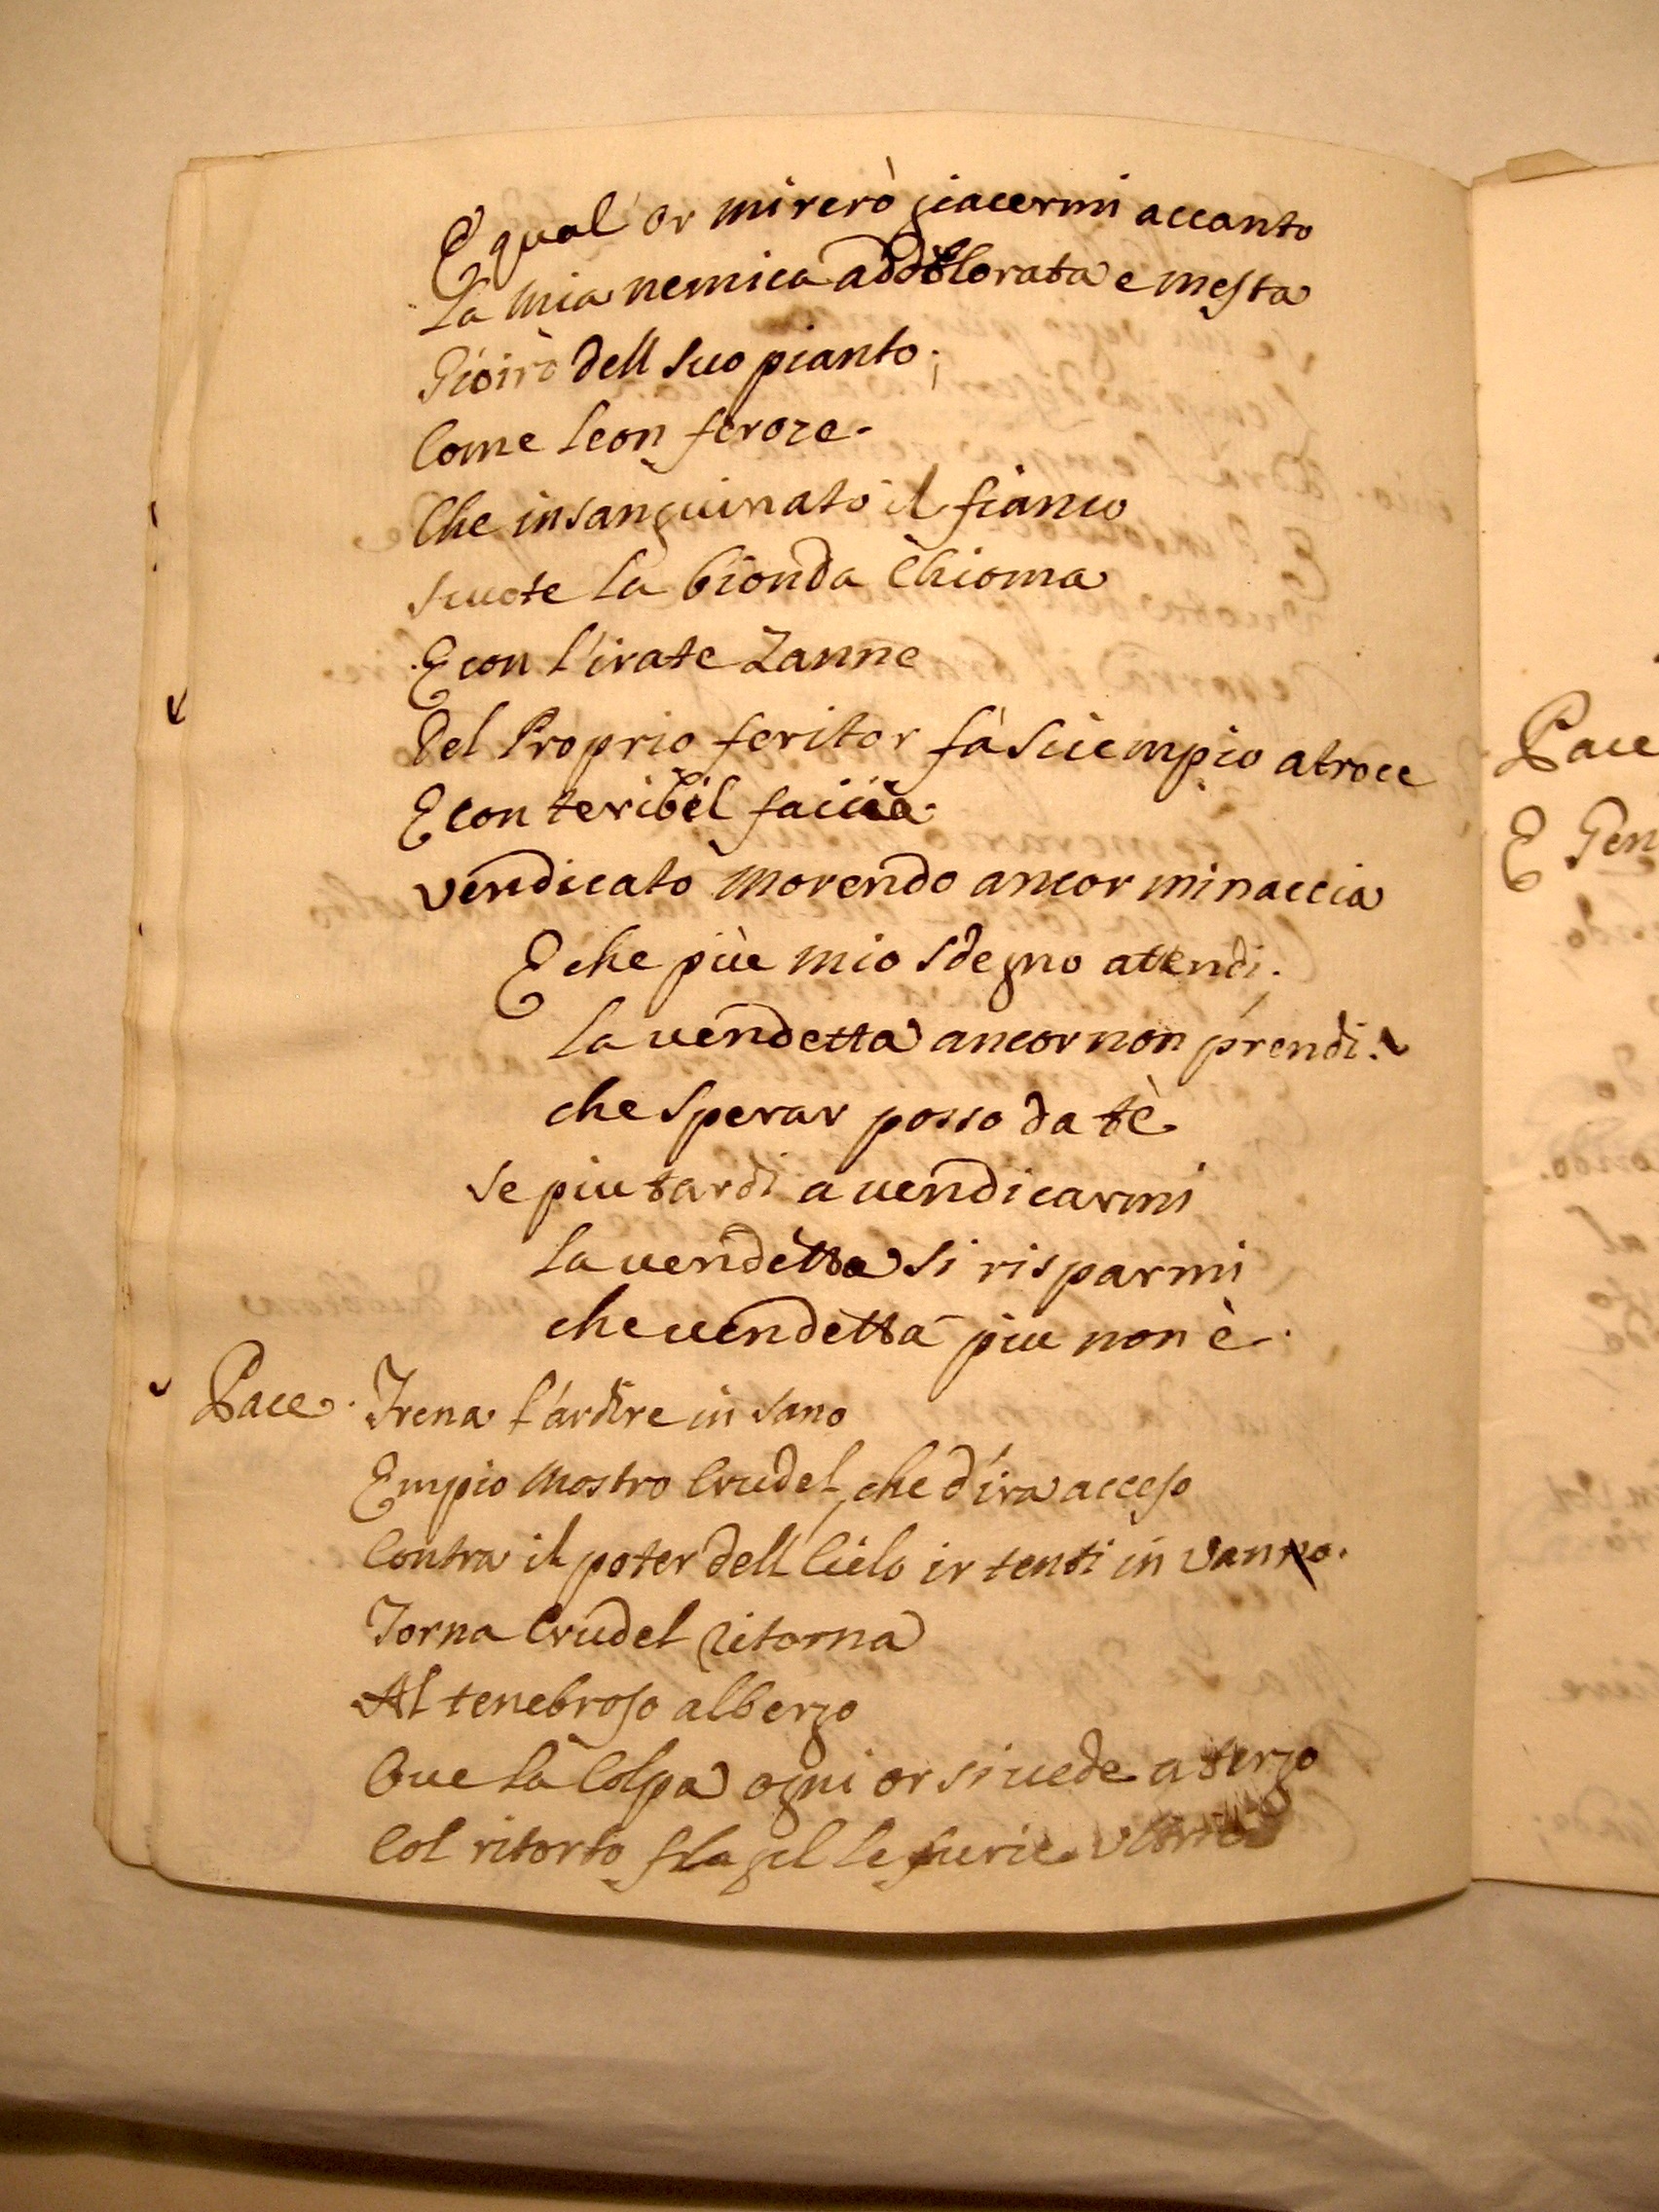 E qual'or mirerò giacermi accanto
La mia nemica addolorata e mesta
Gioirò dell suo pianto;
Come leon feroce
Che insanguinato il fianco
Scuote la bionda Chioma
E con l'irate Zanne
Del Proprio feritor fà sciempio atroce
E con teribil faccia
vendicato morendo ancor minaccia
E che più mio sdegno attendi.
la vendetta ancor non prendi.
che sperar posso da tè
se piu tardi a vendicarmi
la vendetta si risparmi
che vendetta piu non è.
Pace. Frena l'ardire insano
Empio Mostro Crudel, che d'ira acceso
Contra il poter dell Cielo ir tenti in vano.
Torna Crudel ritorna
Al tenebroso albergo
Oue la Colpa ogni or si uede a tergo
Col ritorto flagel le furie
Pace
E Gen